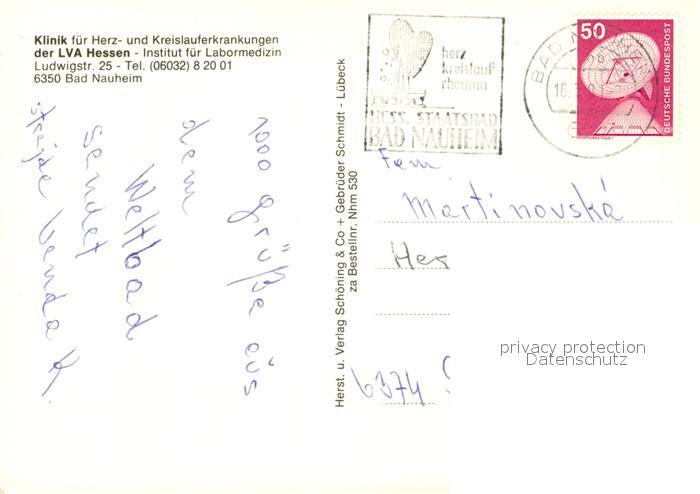 Klinik für Herz- und Kreislauferkrankungen
der LVA Hessen - Institut für Labormedizin
Ludwigstr. 25 - Tel. (06032) 8 20 01
6350 Bad Nauheim
1000 Grüße aus
dem
Weltbad
sendet
Herst. u. Verlag Schöning & Co + Gebrüder Schmidt - Lübeck
za Bestellnr. Nhm 530
herz
kreislauf
rheuma
HESS. STAATSBAD
BAD NAUHEIM
BAD
16.
50
DEUTSCHE BUNDESPOST
Fam
Martinovská
Her
6374
privacy protection
Datenschutz